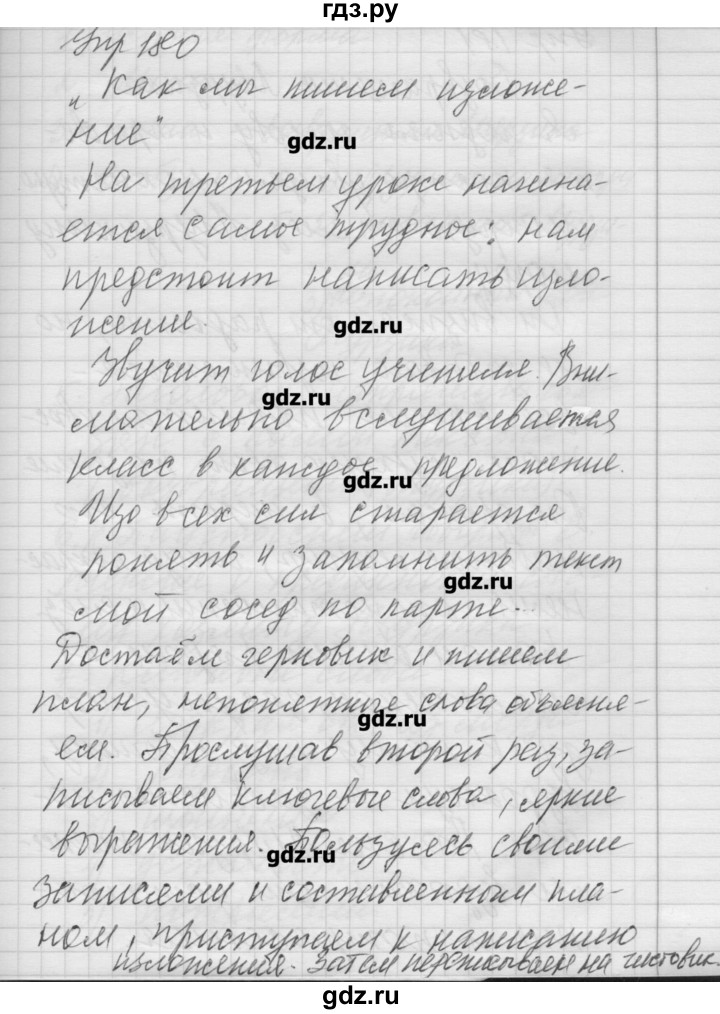 гдз.ру
Упр 180
„Как мы пишем изложе-
ние"
gdz.ru
На третьем уроке начина-
ется самое трудное: нам
предстоит написать изло-
жение.
gdz.ru
Звучит голос учителя. Вни-
gdz.ru
мательно вслушивается
класс в каждое предложение.
gdz.ru
Изо всех сил старается
понять и запомнить текст
gdz.ru
мой сосед по парте.
Достаём черновик и пишем
план, непонятные слова объясня-
gdz.ru
ем. Прослушав второй раз, за-
писываем ключевые слова, яркие
выражения. Пользуясь своими
gdz.ru
записями и составленным пла-
ном, приступаем к написанию
изложения. Затем переписываем на чистовик.
gdz.ru